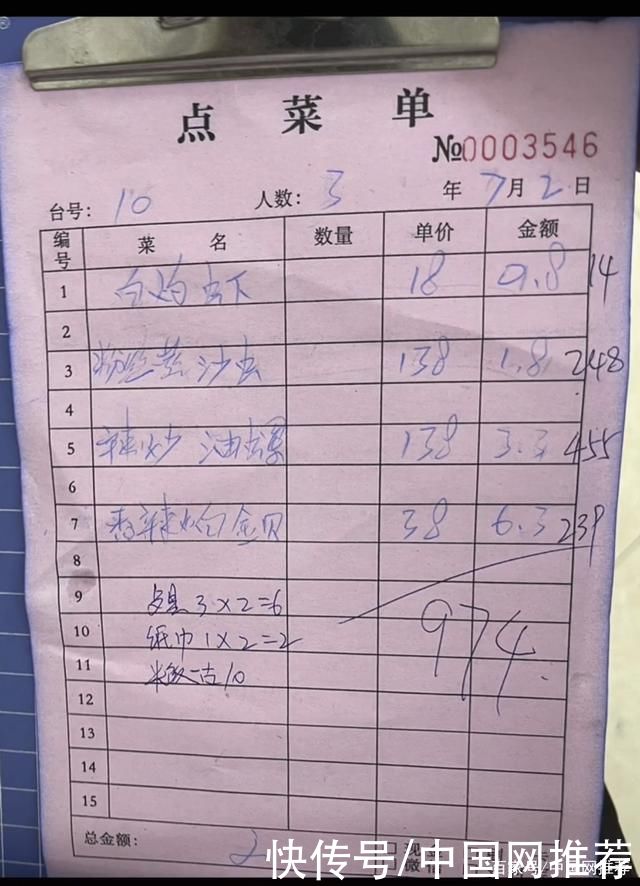 点菜单
№0003546
台号: 10 人数: 3 年 7月2日
编号 菜名 数量 单价 金额
1 白灼虾 18 0.8 14
2
3 粉丝蒸沙虫 138 1.8 248
4
5 辣炒油螺 138 3.3 455
6
7 香辣炒白金贝 38 6.3 239
8
9 3×2=6
10 纸巾1×2=2
974
11 10
12
13
14
15
总金额:
快传号/中国网推荐
百家号/中国网推荐